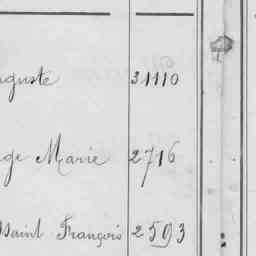 uguste 31110
ge Marie 2716
ssaint François 2593